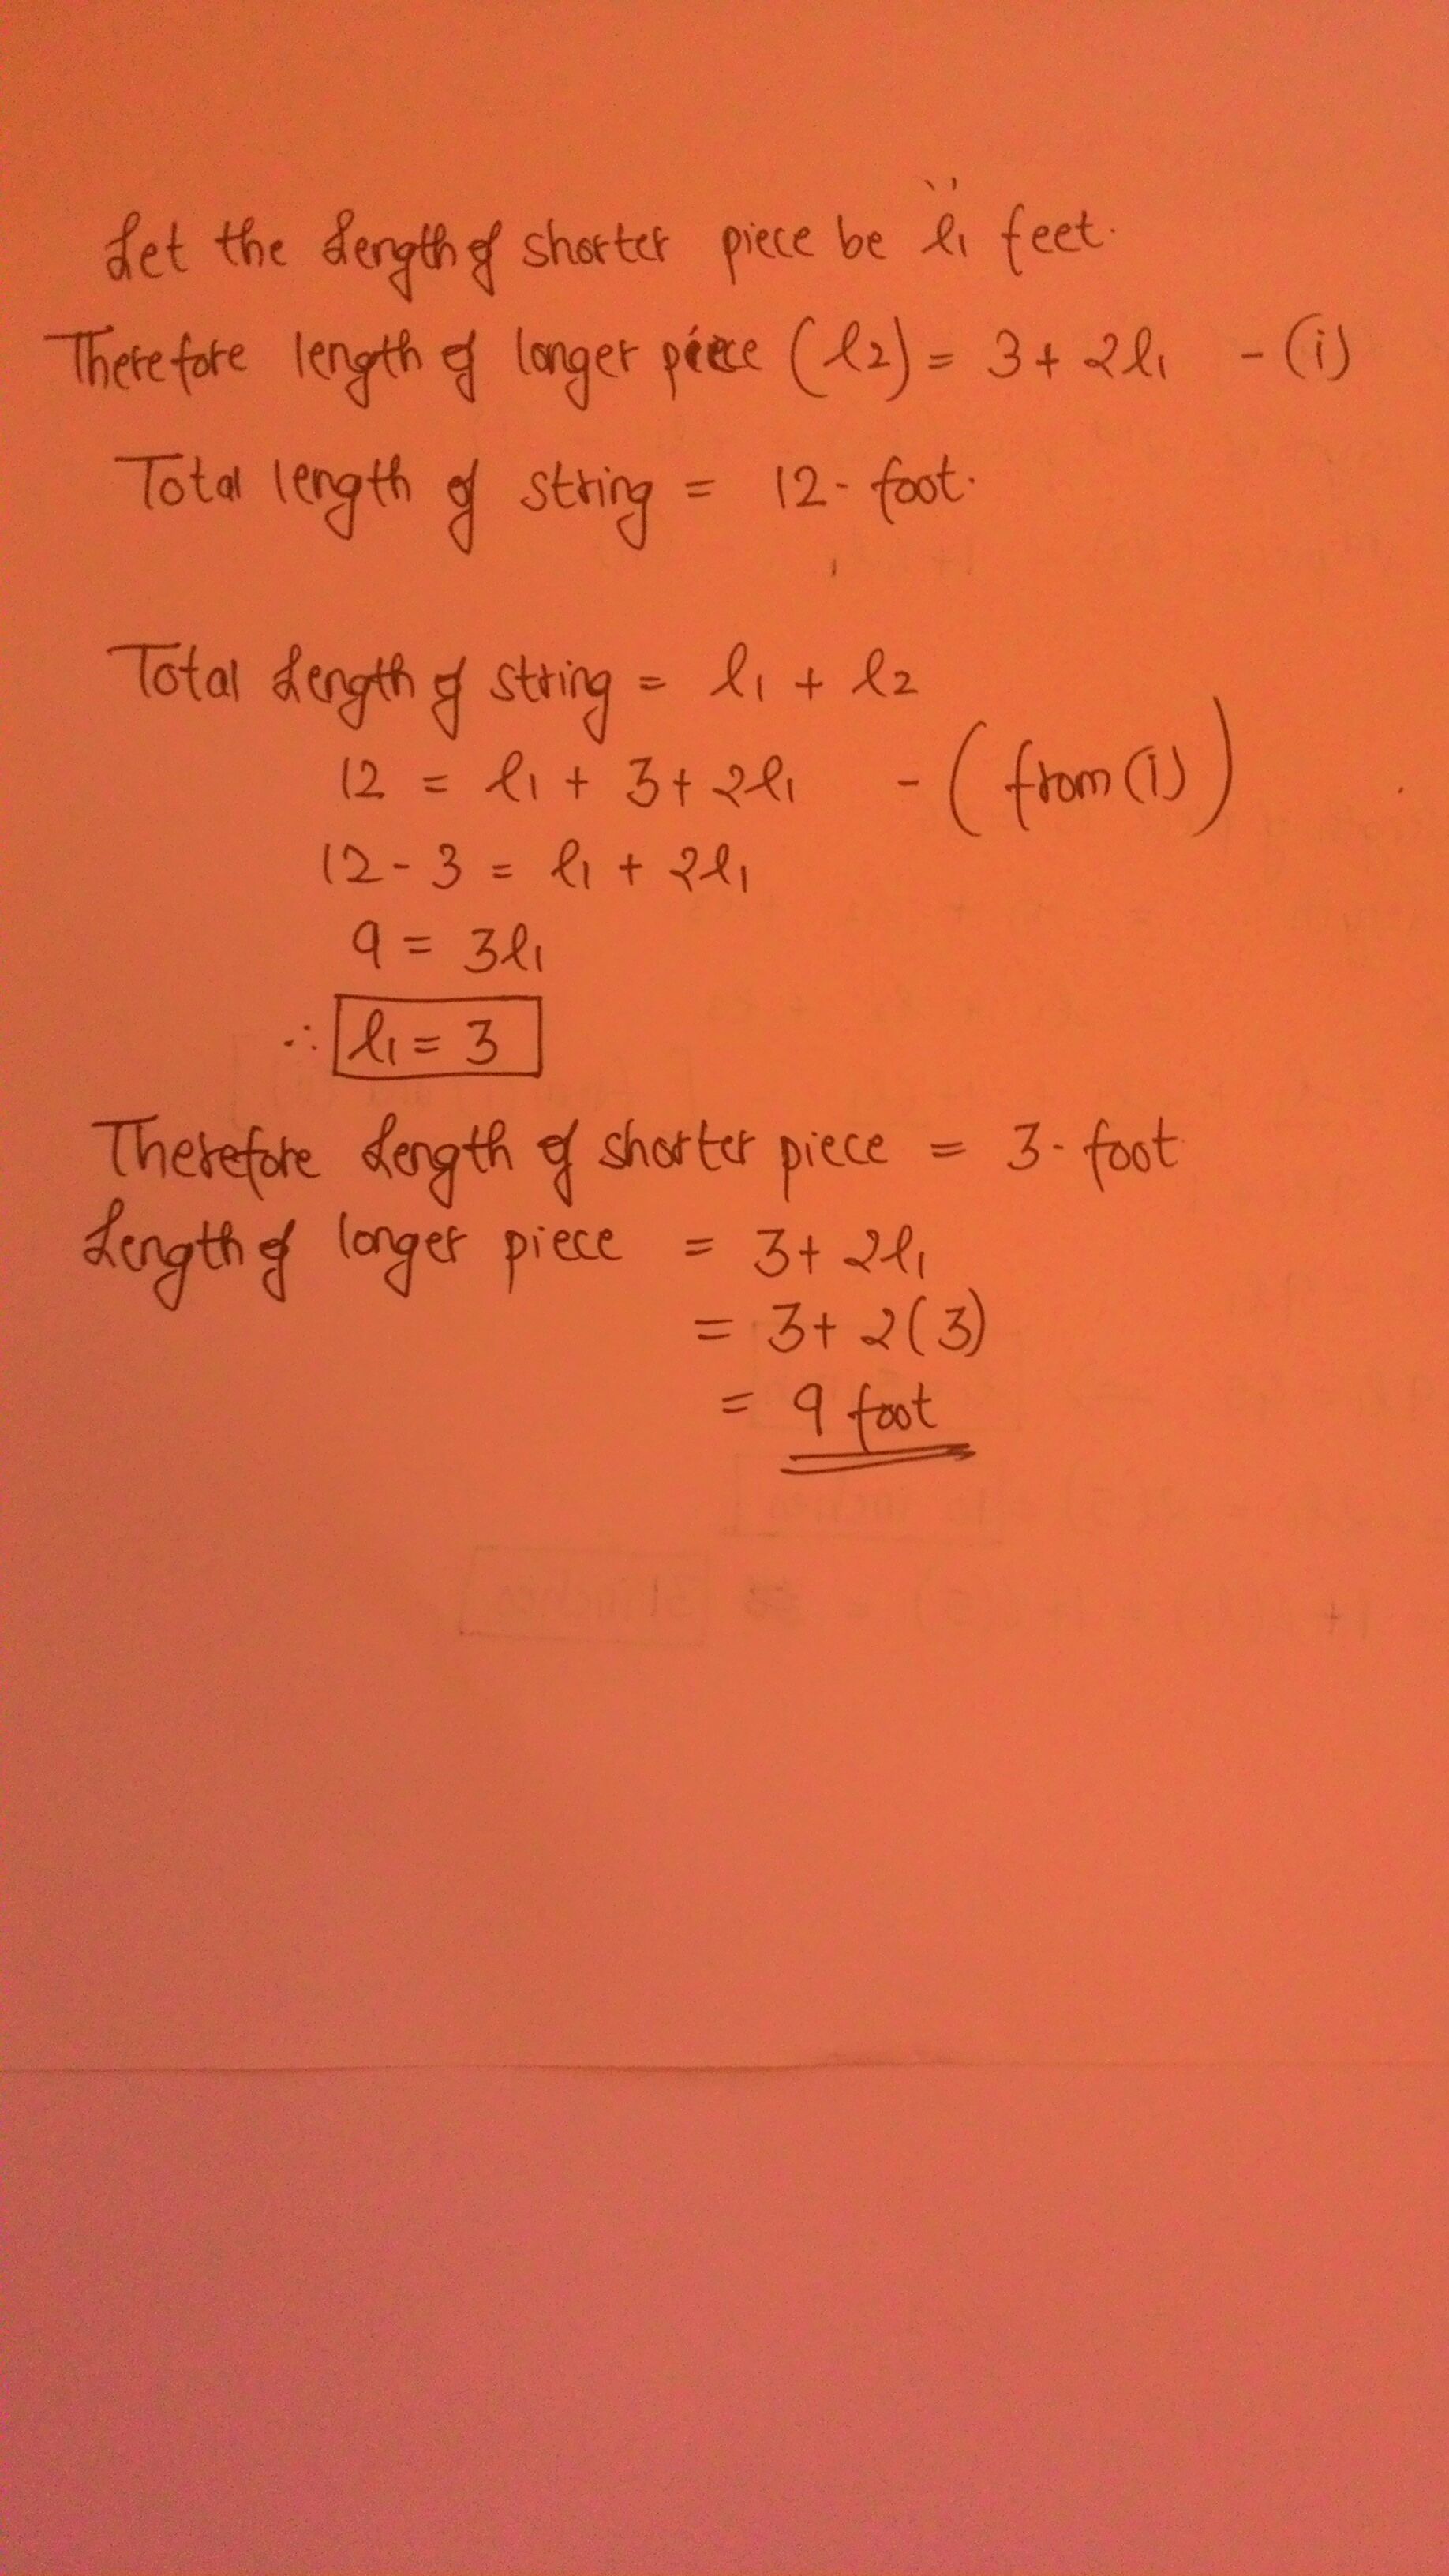 Let the Length of shorter piece be l1 feet.
Therefore length of longer piece (l2) = 3 + 2l1 - (i)
Total length of string = 12 - foot.
Total Length of string = l1 + l2
12 = l1 + 3 + 2l1 - (from (i))
12 - 3 = l1 + 2l1
9 = 3l1
∴ l1 = 3
Therefore Length of shorter piece = 3 - foot
Length of longer piece = 3 + 2l1
= 3 + 2(3)
= 9 foot